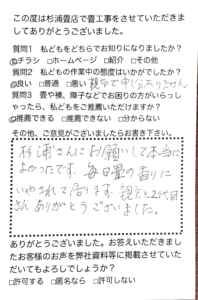 この度は杉浦畳店で畳工事をさせていただきま
してありがとうございました。
質問1 私どもをどちらでお知りになりましたか？
☑チラシ □ホームページ □紹介 □その他
質問2 私どもの作業中の態度はいかがでしたか？
☑良い □普通 □悪い 親切で申し分ありません
質問3 畳や襖、障子などでお困りの方がいらっし
ゃったら、私どもをご推薦いただけますか？
☑推薦できる □推薦できない □分からない
その他、ご意見がございましたらお書き下さい。
杉浦さんにお願いして本当に
よかったです。毎日畳の香りに
いやされて居ります。親方と2代目
さんありがとうございました。
ありがとうございました。お答えいただきまし
たお客様のお声を弊社資料等に掲載させていた
だいてもよろしでしょうか？
□許可する □匿名なら □許可しない